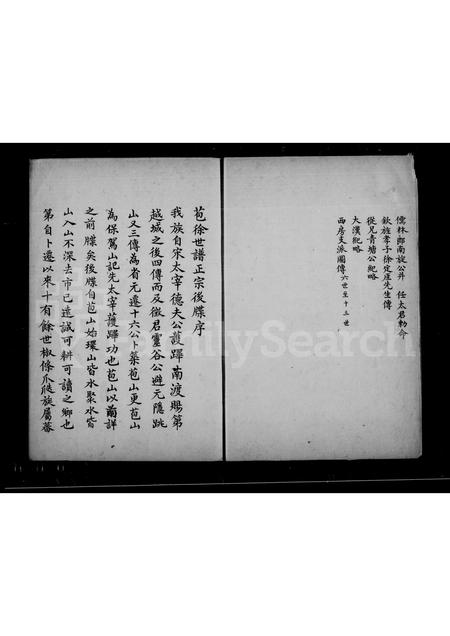 儒林郎南旋公并 任太君勅命
欽旌孝子徐定崖先生傳
從兄青塘公紀略
大漢紀略
西房支派圖傳六世至十三世
苞徐世譜正宗後牒序
我族自宋太宰德夫公護蹕南渡賜第
越城之後四傳而及徵君靈谷公避元隱跳
山又三傳為省元遷十六公卜築苞山更苞山
為保駕山記先太宰護蹕功也苞山以前詳
之前牒矣後牒自苞山始環山皆水聚水皆
山入山不深去市已遠誠可耕可讀之鄉也
第自卜遷以來十有餘世椒條瓜瓞族屬蕃
FamilySearch